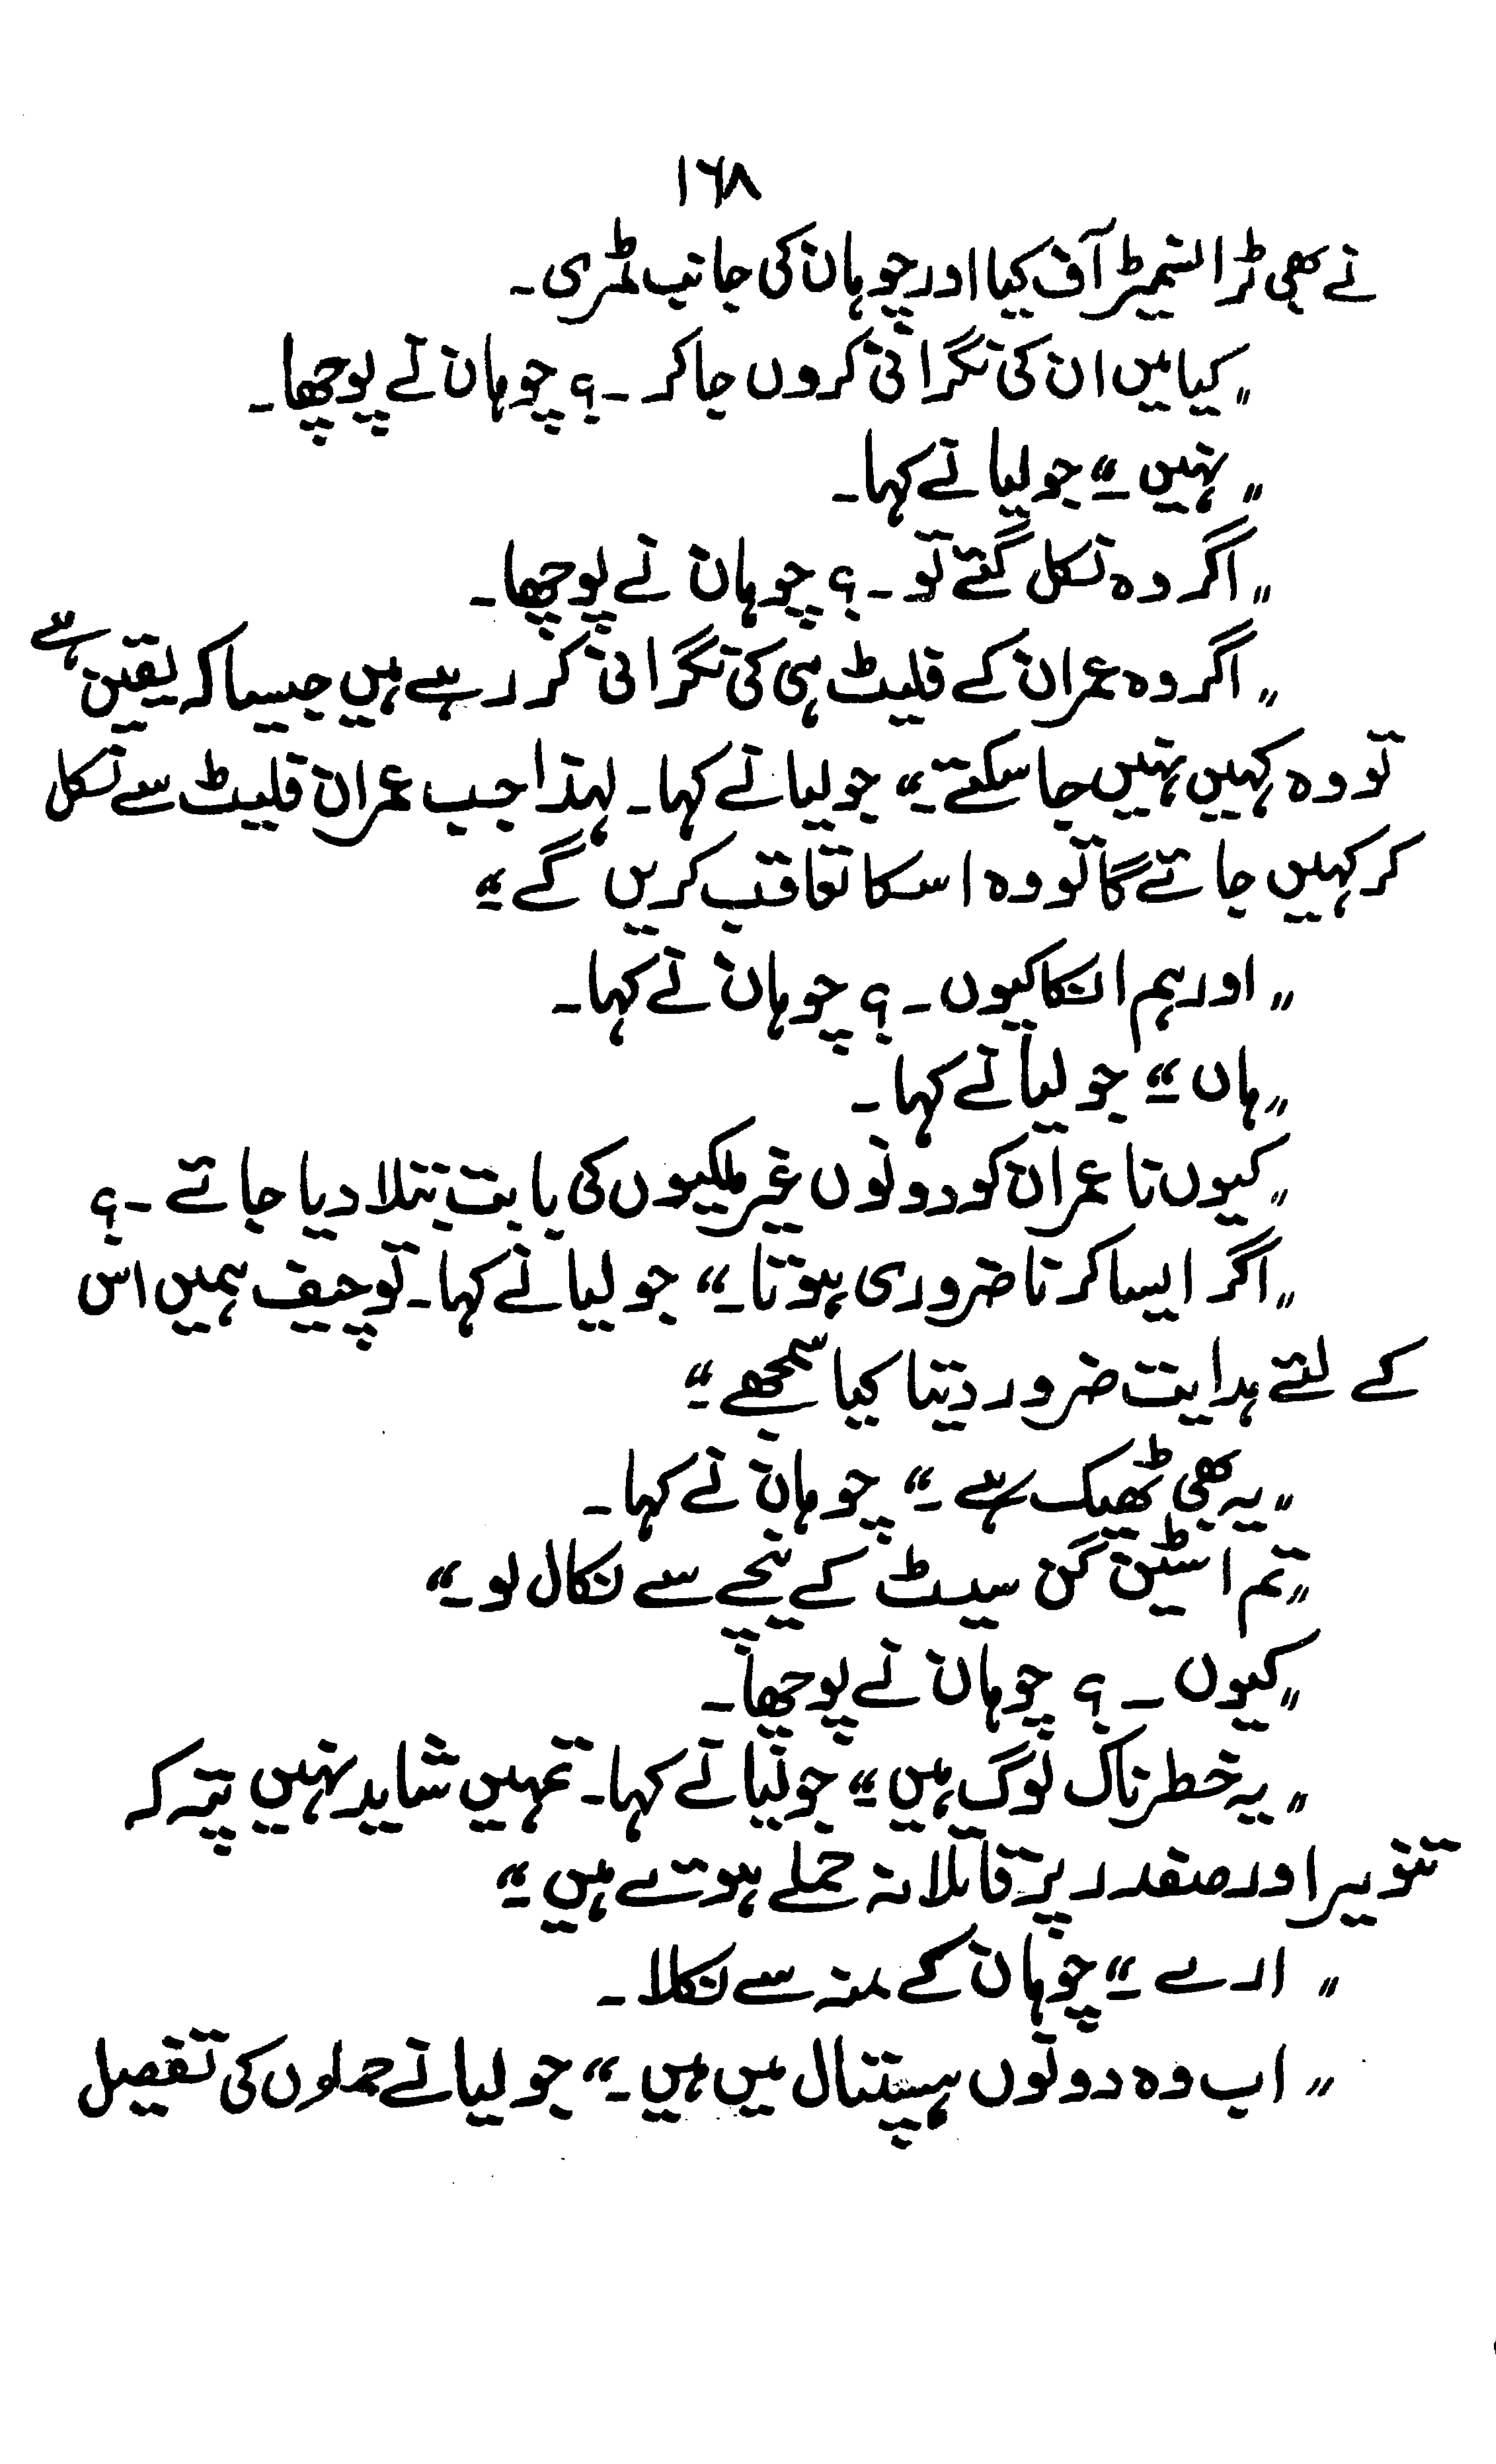 ۱۶۸
نے بھی ٹرانسمیٹر آف کیا اور چوہان کی جانب مڑی۔
"کیا میں ان کی نگرانی کروں جا کر ۔؟ چوہان نے پوچھا۔
"نہیں ۔" جولیا نے کہا۔
"اگر وہ نکل گئے تو ۔؟ چوہان نے پوچھا۔
"اگر وہ عمران کے فلیٹ ہی کی نگرانی کر رہے ہیں جیسا کہ یقین ہے
تو وہ کہیں نہیں جا سکتے ۔" جولیا نے کہا۔ لہذا جب عمران فلیٹ سے نکل
کر کہیں جائے گا تو وہ اسکا تعاقب کریں گے ۔"
"اور ہم انکا کیوں ۔؟ چوہان نے کہا۔
"ہاں ۔" جولیا نے کہا۔
"کیوں نا عمران کو دونوں غیر ملکیوں کی بابت بتلا دیا جائے ۔؟
"اگر ایسا کرنا ضروری ہوتا ۔" جولیا نے کہا۔ تو چیف ہمیں اس
کے لئے ہدایت ضرور دیتا کیا سمجھے ۔"
"یہ بھی ٹھیک ہے ۔" چوہان نے کہا۔
"تم اسٹین گن سیٹ کے نیچے سے نکال لو ۔"
"کیوں ۔؟ چوہان نے پوچھا۔
"یہ خطرناک لوگ ہیں ۔" جولیا نے کہا۔ تمہیں شاید نہیں پتہ کہ
تنویر اور صفدر پر قاتلانہ حملے ہوئے ہیں ۔"
"ارے ۔" چوہان کے منہ سے نکلا۔
"اب وہ دونوں ہسپتال میں ہیں ۔" جولیا نے حملوں کی تفصیل